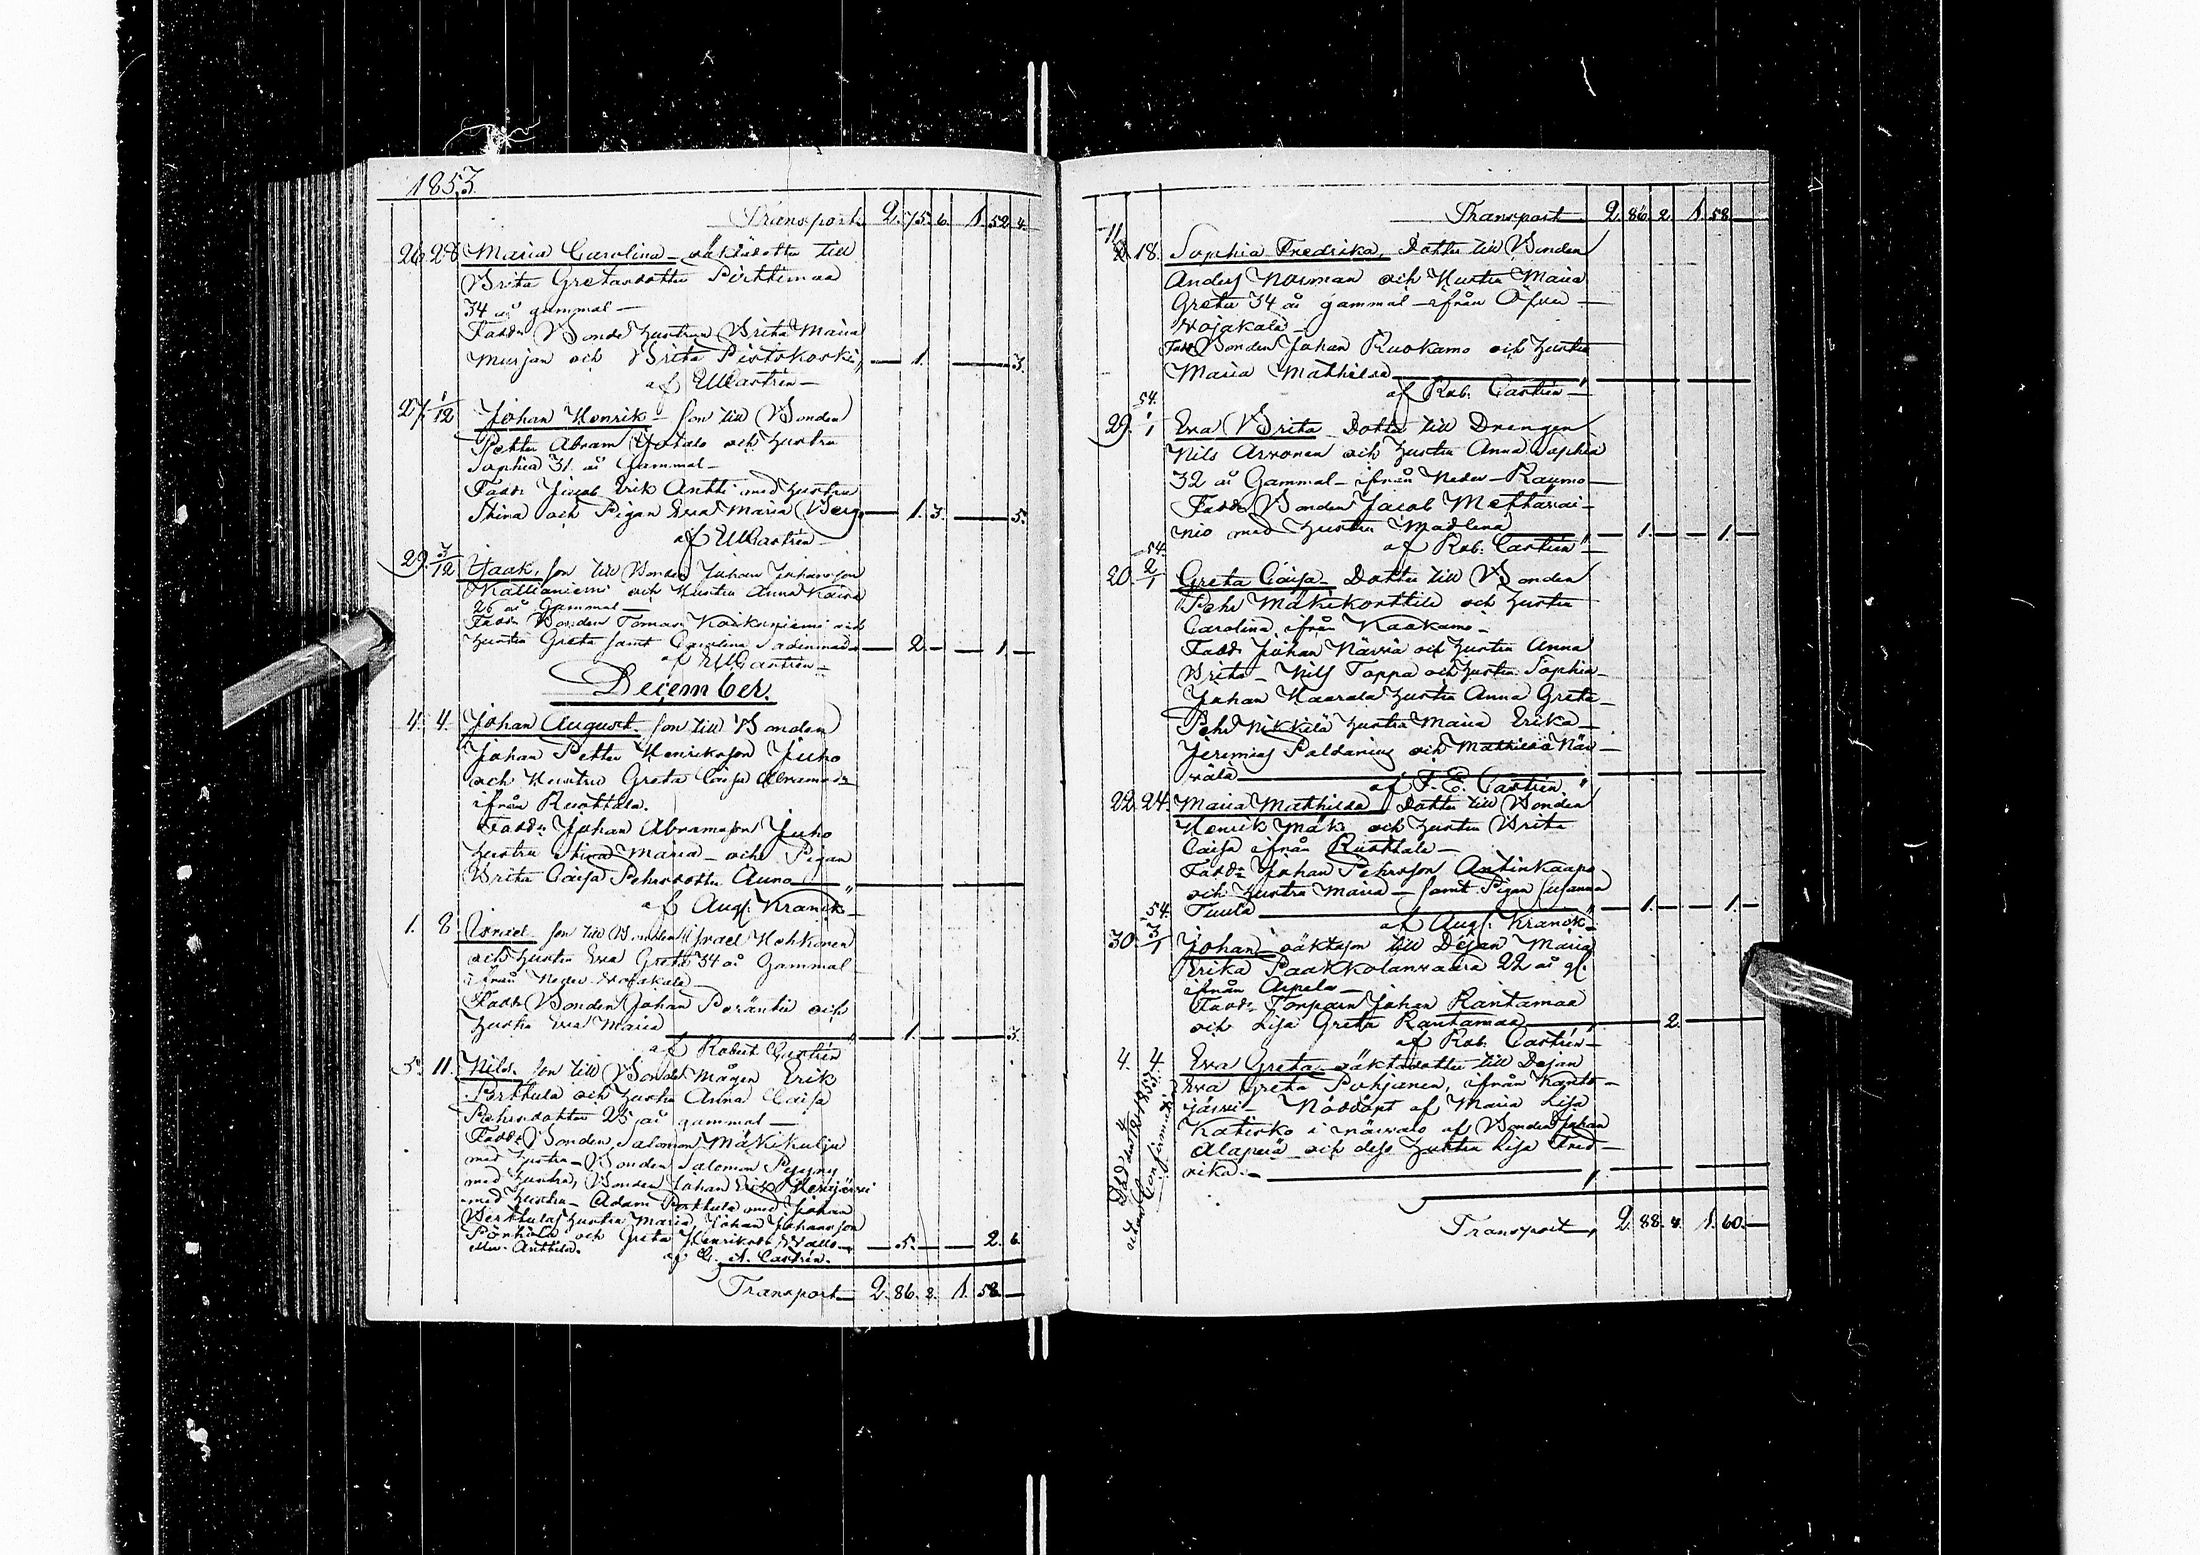 1853.
Transport 2. 75. 6. 1. 52. 4.
26. 28 Maria Carolina oäkta dotter till
Brita Gretasdotter Pirttimaa
34 år gammal
Fadd: Bonde hustrun Brita Maria
Murjan och Brita Pistokoski 1. 3.
af Castrén
27. 1/12 Johan Henrik Son till Bonden
Petter Abram och hustru
Sophia 31 år Gammal
Fadd: Jacob Erik Antti med hustru
Stina och Pigan Eva Maria Berg 1. 3. 5.
af Castrén
29. 3/12 Isaak, son till Bonden Johan Johansson
Kallioniemi och Hustru Anna Kaisa
26 år Gammal
Fadd: Bonden Tomas Koikuniemi och
hustru Greta samt Carolina 2. 1
af Castrén
December.
4. 4. Johan August son till Bonden
Johan Petter Henriksson Juho
och Hustru Greta Caisa Abramsdr
ifrån Ruottala.
Fadd: Johan Abramsson Juho
hustru Stina Maria och Pigan
Brita Caisa Pehrsdotter Auno
af Aug. Kranck
1. 8. Israel son till Bonden Israel Hohkonen
och hustru Eva Greta 34 år Gammal
ifrån Neder Vojakala
Fadd: Bonden Johan Poränki och
hustru Eva Maria 1. 3.
af Robert Castrén
5. 11. Nils. Son till Bonde Mågen Erik
Porthula och hustru Anna Caisa
Pehrsdotter 25 år gammal
Fadd: Bonden Salomon Mäkikulju
med hustru Bonden Salomon
med hustru, Bonden Johan Erik
med hustru Adam Porthula med Johan
hustru Maria, Johan Johansson
och Greta Henriksdr 5. 2. 6.
Anttila. af A. Castrén.
Transport 2. 86. 2. 1. 58.
Transport 2. 86. 2. 1. 58
11 18. Sophia Fredrika, Dotter till Bonden
Anders Norman och Hustru Maria
Greta 34 år gammal ifrån Öfver
Vojakala
Fadd: Bonden Johan Ruokamo och hustru
Maria Mathilda
af Rob. Castrén
54.
29. 1/1 Eva Brita Dotter till Drengen
Nils Arvonen och hustru Anna Sophia
32 år Gammal ifrån Neder Raumo
Fadd: Bonden Jacob Mettävai-
nio med hustru Madlena 1. 1.
af Rob. Castrén
54.
20. 2/1 Greta Caisa Dotter till Bonden
Pehr Mäkikorttila och hustru
Carolina, ifrån Kaakamo
Fadd: Johan Närriä och hustru Anna
Brita Nils Toppa och hustru Sophia
Johan Kaarala hustru Anna Greta
Pehr Nikkilä hustru Maria Erika
Jeremias Paldanius och Mathilda När-
välä
af F. E. Castrén
22. 24. Maria Mathilda, Dotter till Bonden
Henrik Mäki och hustru Brita
Caisa ifrån Ruottala
Fadd: Johan Pehrsson Antinkaapo
och hustru Maria samt Pigan Susanna
Tuula 1. 1.
af Aug. Kranck
54.
30. 3/1 Johan oäkta son till Dejan Maria
Erika Paakkolanvaara 22 år gl.
ifrån Arpela
Fadd: Torparen Johan Rantamaa
och Lisa Greta Rantamaa 2.
af Rob. Castrén
4. 4. Eva Greta oäkta dotter till Dejan
Eva Greta Pohjanen, ifrån Kanto-
järvi Nöddöpt af Maria Lisa
Katisko i närvaro af Bonden Johan
Alaperä och dess hustru Lisa Fred-
rika.
Död den 4/12 1853.
utan Confirmation
Transport 2. 88. 4. 1. 60.